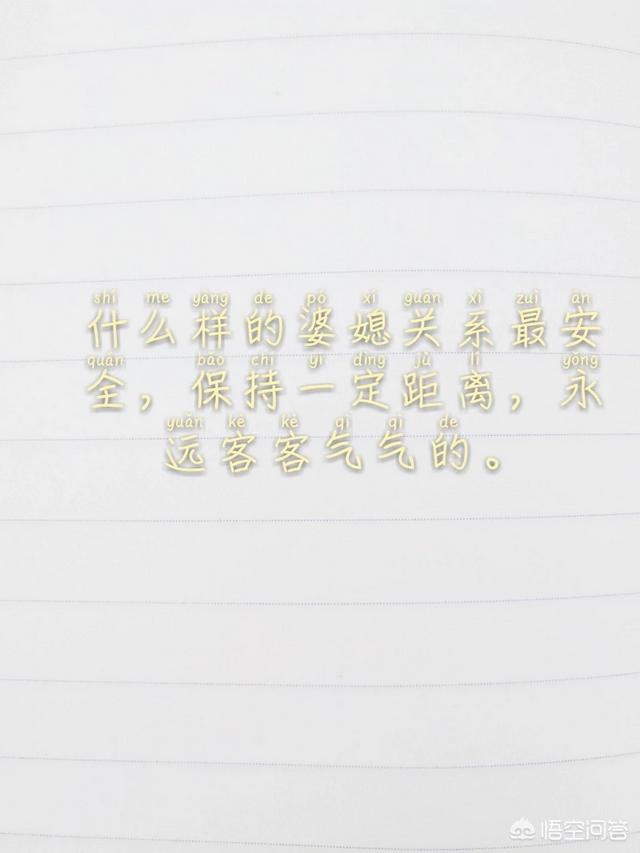 shí me yàng de pó xí guān xì zuì ān
什么样的婆媳关系最安
quán bǎo chí yī dìng jù lí yǒng
全，保持一定距离，永
yuǎn kè kè qì qì de
远客客气气的。
悟空问答